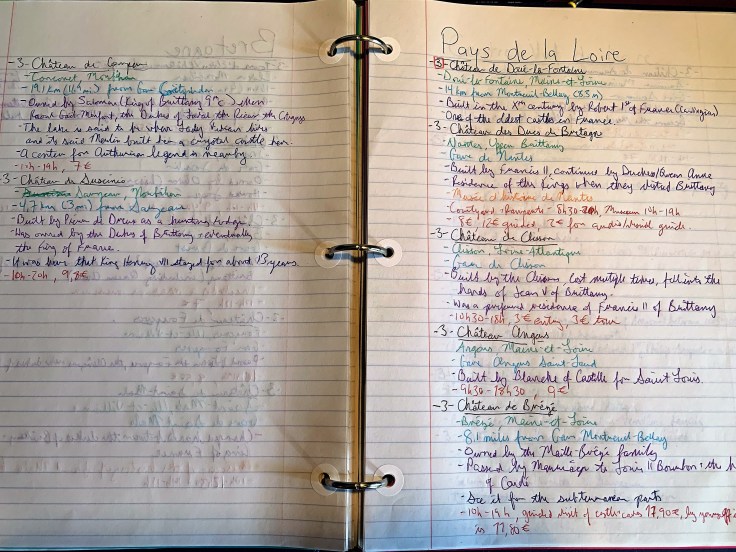 -3- Château de Comper
- Concoret, Morbihan
- 19,1 km
- Owned by Salomon (King of Brittany 9th c), then
Raoul Gaël-Montfort, the Dukes of Laval, the Rieux, the Colignys
- The lake is said to be where Lady Vivian lives
and its said Merlin built her a crystal castle here.
- A center for Arthurian legend is nearby
- 10h-19h, 7€
-3- Château de Suscinio
- Sarzeau, Morbihan
- 4,7 km (3m) from Sarzeau
- Built by Pierre de Dreux as a hunting lodge.
- Was owned by the Dukes of Brittany & eventually
the King of France.
- It was here that King Henry VII stayed for about 13 years
- 10h-20h, 9,8€
Pays de la Loire
-3- Château de Doué-la-Fontaine
- Doué-la-Fontaine, Maine-et-Loire
- 14 km from Montreuil-Bellay
- Built in the Xth century by Robert 1st of France
- One of the oldest castles in France.
-3- Château des Ducs de Bretagne
- Nantes, Upper Brittany
- Gare de Nantes
- Built by Francis II, continued by Duchess/Queen Anne
- Residence of the Kings when they visited Brittany
- Musée d'histoire de Nantes
- Courtyard & ramparts: 8h30- Museum 10h-19h
- 8€, 12€ guided, for audio/visual guide.
-3- Château de Clisson
- Clisson, Loire-Atlantique
- Gare de Clisson
- Built by the Clissons, lost multiple times, fell into the
hands of Jean V of Brittany.
- Was a preferred residence of Francis II of Brittany
- 10h30-18h, 3€ entry, 3€ tour
-3- Château Angers
- Angers, Maine-et-Loire
- Gare Angers Saint-Laud
- Built by Blanche of Castille for Saint Louis.
- 9h30-18h30, 9€
-3- Château de Brézé
- Brézé, Maine-et-Loire
- 8.1 miles from Gare Montreuil-Bellay
- Owned by the Maille-Brézé family
- Passed by Marriage to Louis II Bourbon, the
of Condé
- See it for the subterranean parts
- 10h-19h, guided visit of castle & caves 17,90€, by yourself
is 11,80€